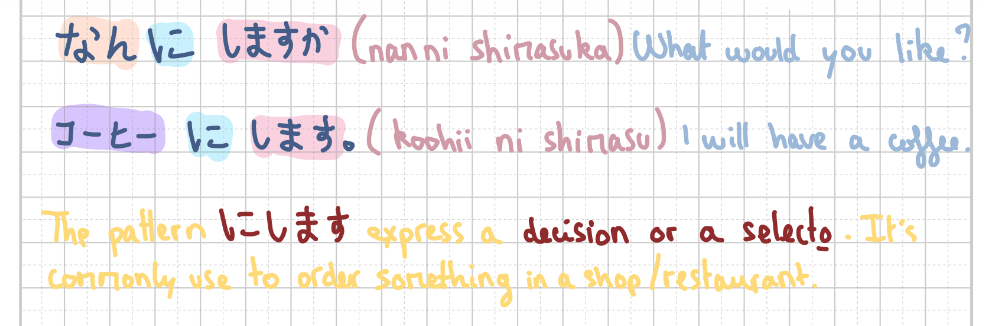 なんにしますか (nanni shimasuka) What would you like?
コーヒーにします。(koohii ni shimasu) I will have a coffee.
The pattern にします express a decision or a selecto. It's
commonly use to order something in a shop/restaurant.